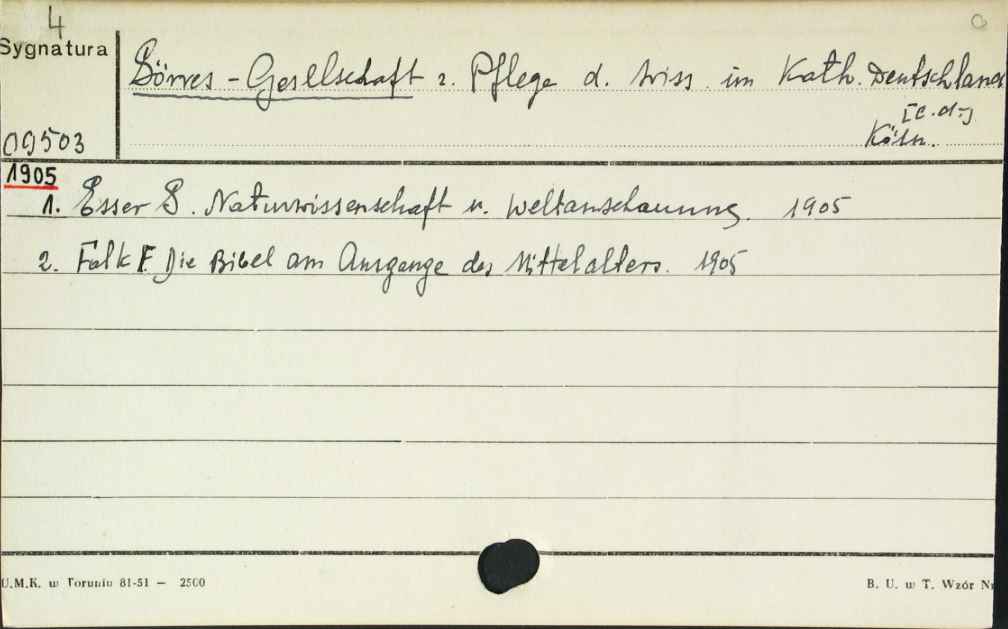 4
Sygnatura
Görres-Gesellschaft z. Pflege d. Wiss. im Kath. Deutschland
[c.d.]
09503
Köln.
1905
1. Esser G. Naturwissenschaft u. Weltanschauung. 1905
2. Falk F. Die Bibel am Ausgange des Mittelalters. 1905
U.M.K. w Toruniu 81-51 — 2500
B. U. w T. Wzór Nr